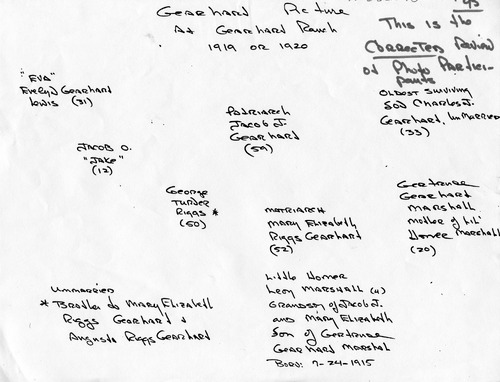 Gearhard Picture
At Gearhard Ranch
1919 or 1920
This is the
Corrected Review
of Photo Partici-
pants
"Eva"
Evelyn Gearhard
Lewis (31)
Jacob O.
"Jake"
(12)
Patriarch
Jacob J.
Gearhard
(59)
Oldest Surviving
Son Charles J.
Gearhard, unmarried
(33)
George
Turner
Riggs *
(50)
Matriarch
Mary Elizabeth
Riggs Gearhart
(52)
Gertrude
Gearhard
Marshall
mother of Lil'
Homer Marshall
(20)
unmarried
* Brother to Mary Elizabeth
Riggs Gearhart &
Augusta Riggs Gearhart
Little Homer
Leroy Marshall (4)
Grandson of Jacob J.
and Mary Elizabeth
Son of Gertrude
Gearhard Marshal
Born: 7-24-1915